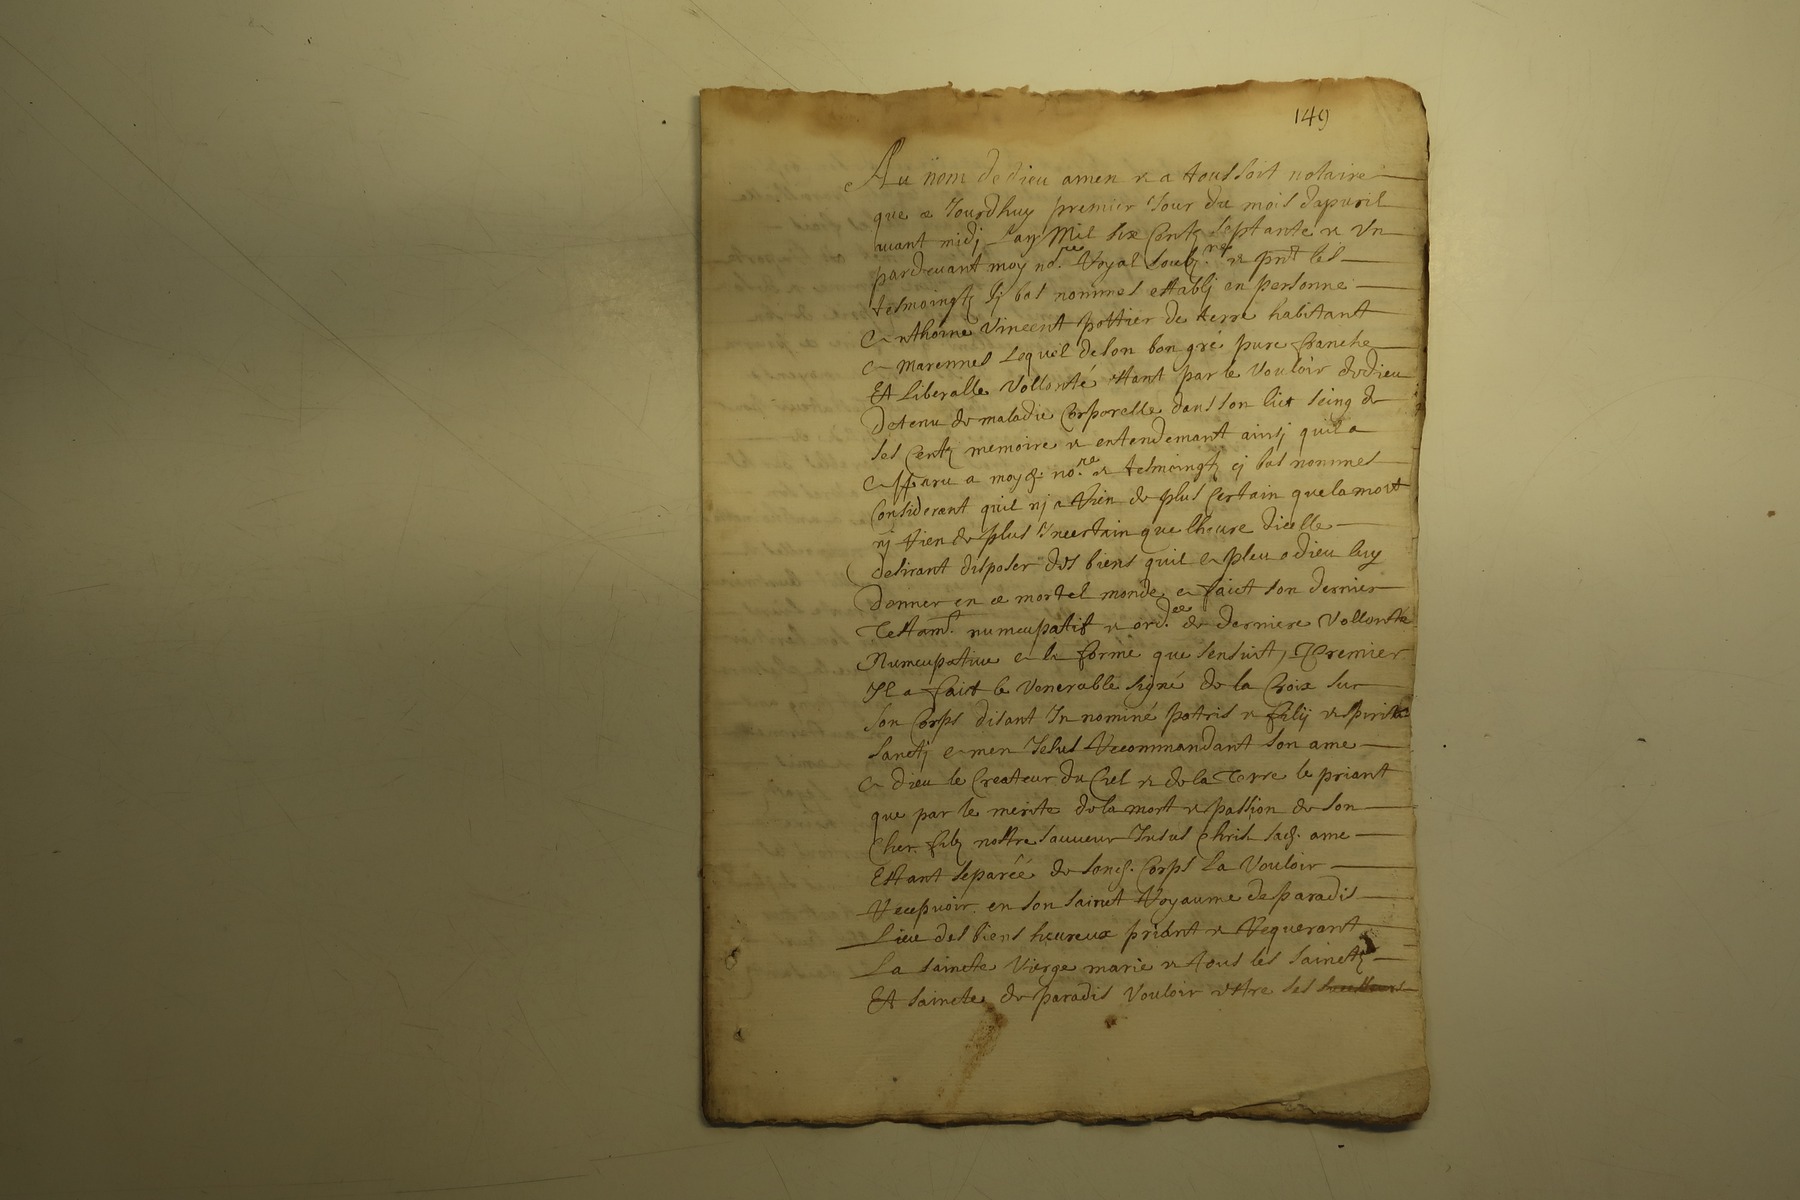 149
Au nom de dieu amen & a tous soit notaire
que ce Jourdhuy premier Jour du mois dapvril
avant midj Lan Mil six Centz septante & Vn
pardevant moy no.re Royal soubz.né & pnt les
tesmoingtz sj bas nommes establj en personne
Anthoine Vincent pottier de terre habitant
a marennes Lequel de son bon gré pure franche
Et Liberalle Vollonté estant par le Vouloir de dieu
Detenu de maladie Corporelle dans son lict seing de
ses Centz memoire & entendemant ainsj quil a
apparu a moyd. no.re & tesmoingtz cj bas nommes
Considerant quil nj a Rien de plus Certain que la mort
nj Rien de plus Incertain que lheure dicelle
desirant disposer des biens quil a pleu a dieu luy
donner en ce mortel monde a faict son dernier
Testamt. numcupatif & ord.ce de derniere Vollonté
Numcupative a la forme que sensuit, Premier
Il a faict le Venerable signe de la Croix sur
son Corps disant In nominé patris & filij & spiritus
sanctj amen Jesus Recommandant son ame
a dieu le Createur du Ciel & de la Terre le priant
que par le merite de la mort & passion de son
Cher filz nostre sauveur Jesus Christ sad. ame
Estant separéé de sond. Corps La Vouloir
Recepvoir en son sainct Royaume de paradis
Lieu des biens heureux priant & Requerant
La saincte Vierge marie & tous les sainctz
Et saincte de paradis Vouloir estre ses